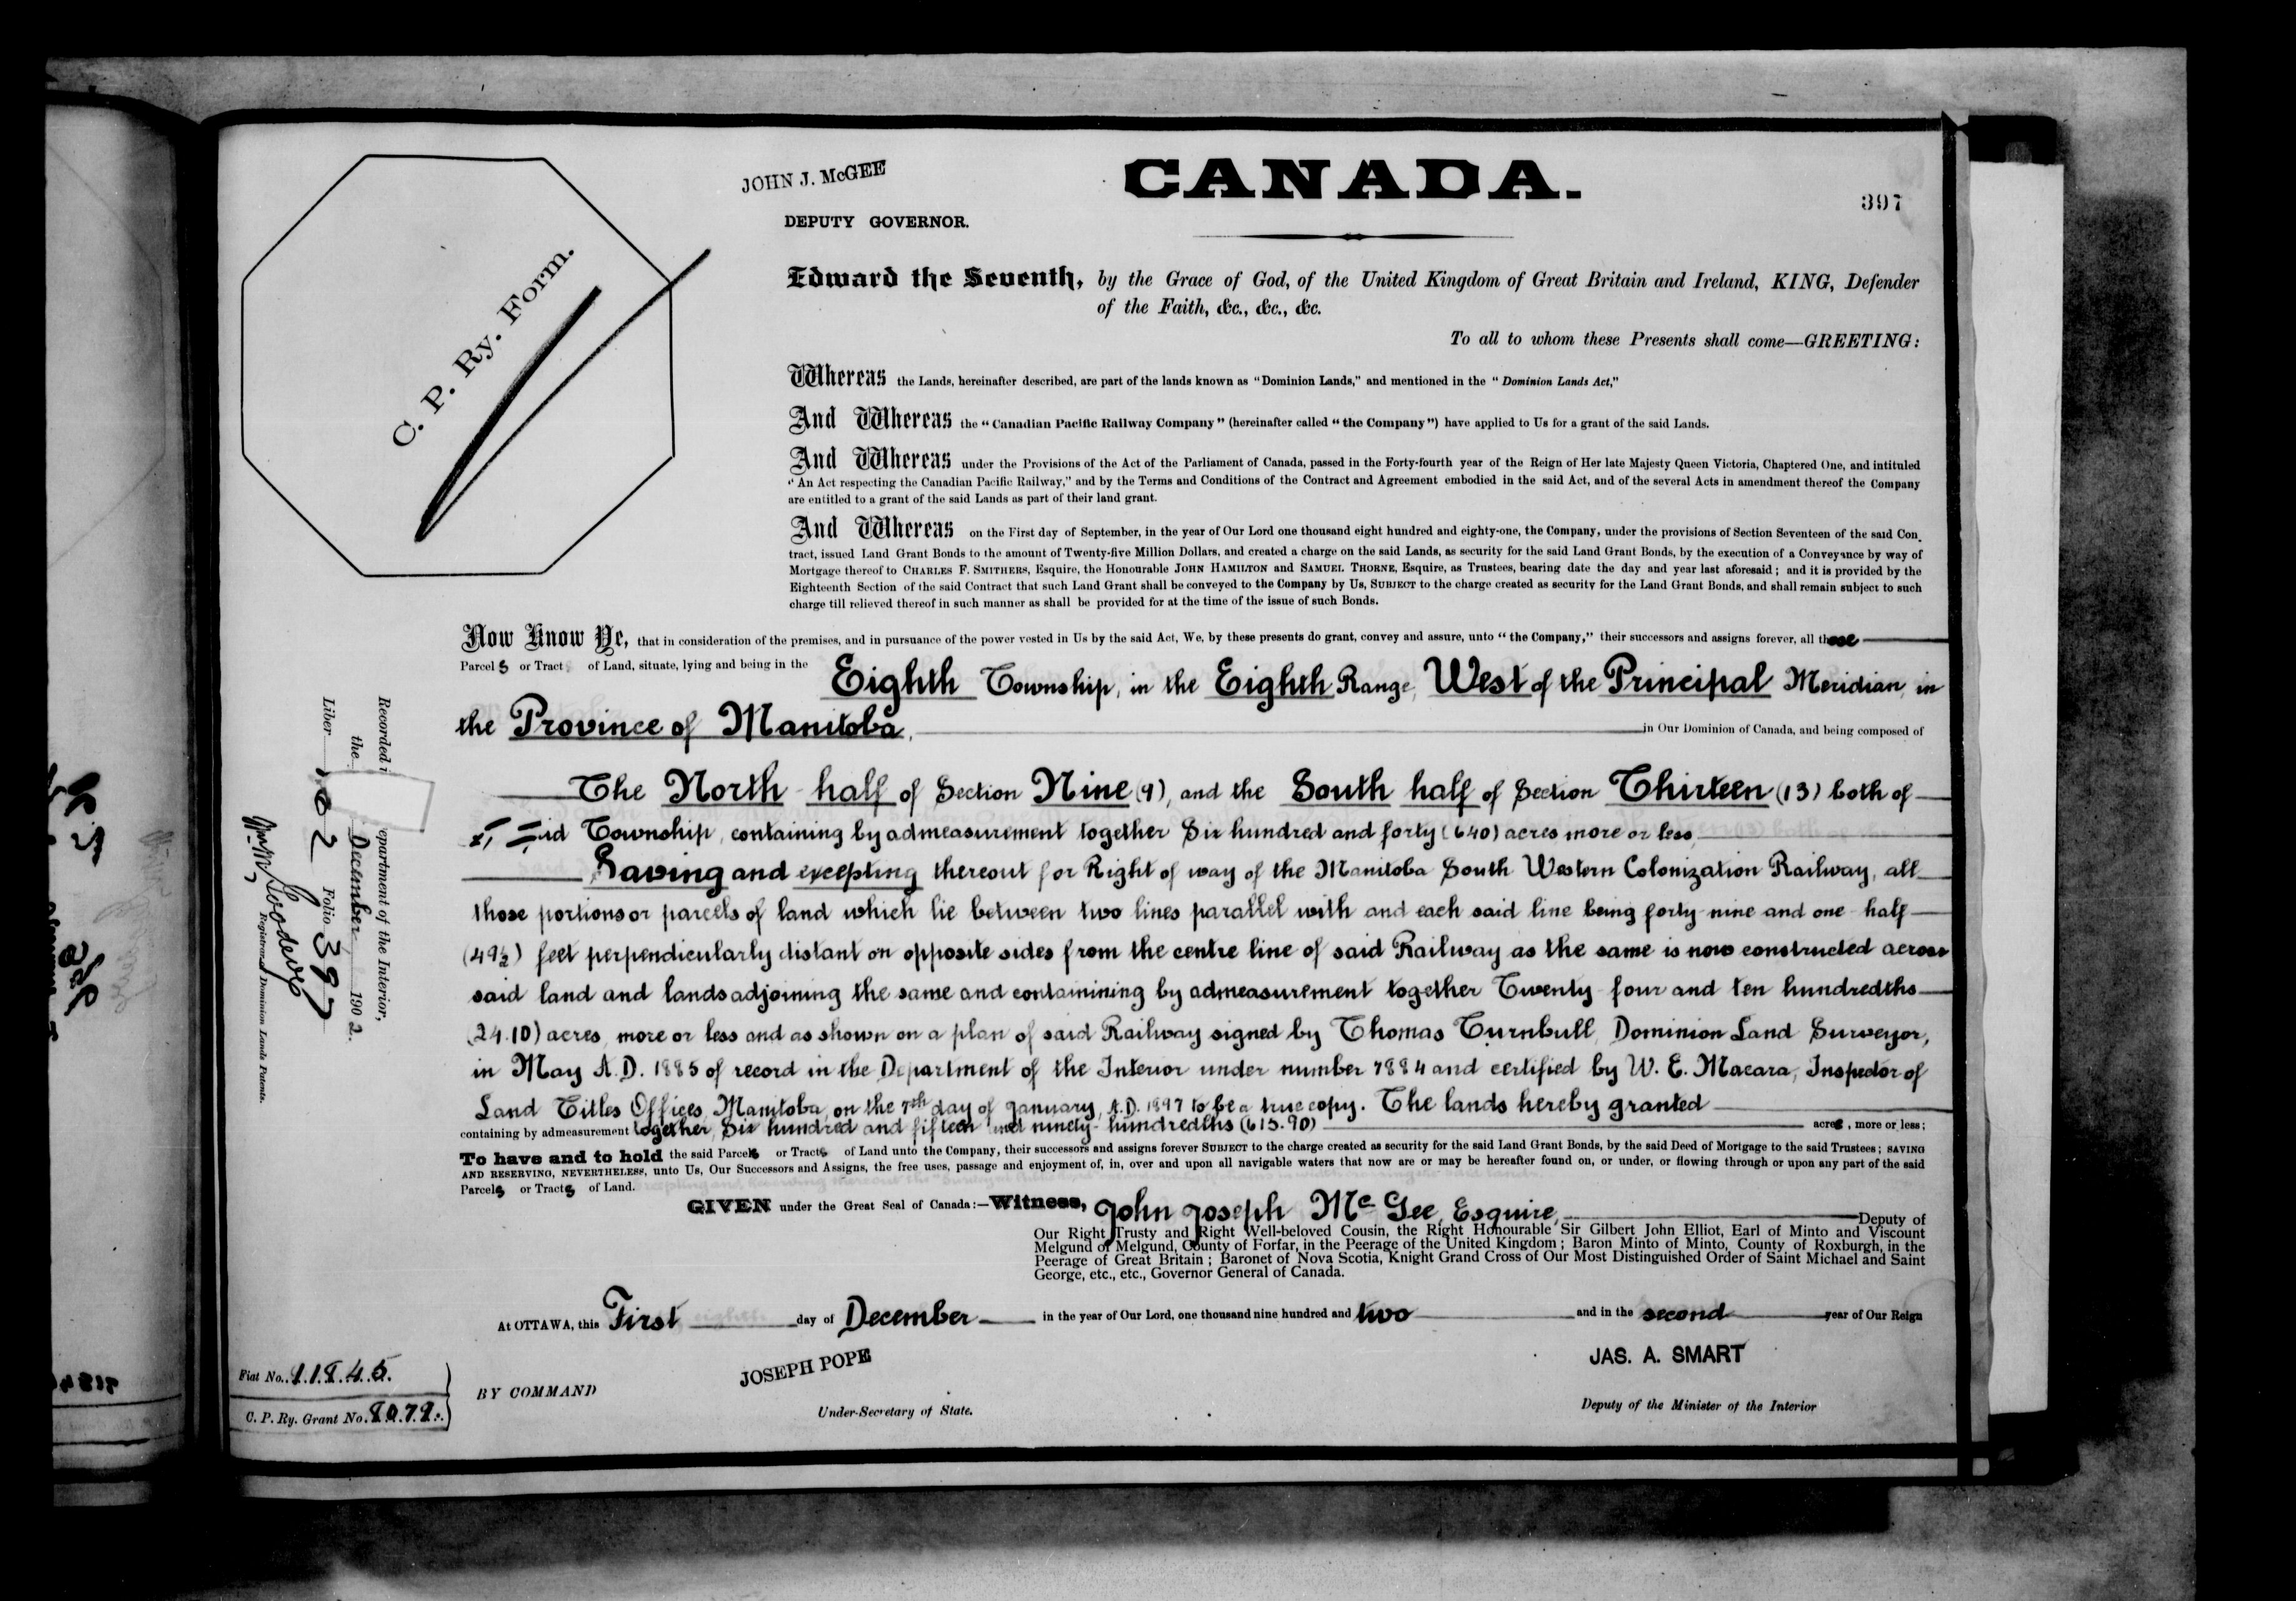 JOHN J. McGEE
DEPUTY GOVERNOR.
CANADA.
397
C. P. Ry. Form.
Edward the Seventh, by the Grace of God, of the United Kingdom of Great Britain and Ireland, KING, Defender
of the Faith, &c., &c., &c.
To all to whom these Presents shall come—GREETING:
Whereas the Lands, hereinafter described, are part of the lands known as "Dominion Lands," and mentioned in the "Dominion Lands Act,"
And Whereas the "Canadian Pacific Railway Company" (hereinafter called "the Company") have applied to Us for a grant of the said Lands.
And Whereas under the Provisions of the Act of the Parliament of Canada, passed in the Forty-fourth year of the Reign of Her late Majesty Queen Victoria, Chaptered One, and intituled
"An Act respecting the Canadian Pacific Railway," and by the Terms and Conditions of the Contract and Agreement embodied in the said Act, and of the several Acts in amendment thereof the Company
are entitled to a grant of the said Lands as part of their land grant.
And Whereas on the First day of September, in the year of Our Lord one thousand eight hundred and eighty-one, the Company, under the provisions of Section Seventeen of the said Con-
tract, issued Land Grant Bonds to the amount of Twenty-five Million Dollars, and created a charge on the said Lands, as security for the said Land Grant Bonds, by the execution of a Conveyance by way of
Mortgage thereof to CHARLES F. SMITHERS, Esquire, the Honourable JOHN HAMILTON and SAMUEL THORNE, Esquire, as Trustees, bearing date the day and year last aforesaid; and it is provided by the
Eighteenth Section of the said Contract that such Land Grant shall be conveyed to the Company by Us, SUBJECT to the charge created as security for the Land Grant Bonds, and shall remain subject to such
charge till relieved thereof in such manner as shall be provided for at the time of the issue of such Bonds.
Now Know Ye, that in consideration of the premises, and in pursuance of the power vested in Us by the said Act, We, by these presents do grant, convey and assure, unto "the Company," their successors and assigns forever, all those
Parcels or Tract of Land, situate, lying and being in the Eighth Township, in the Eighth Range, West of the Principal Meridian, in
the Province of Manitoba, in Our Dominion of Canada, and being composed of
The North half of Section Nine (9), and the South half of Section Thirteen (13) both of
id Township, containing by admeasurement together Six hundred and forty (640) acres more or less,
Saving and excepting thereout for Right of way of the Manitoba South Western Colonization Railway, all
those portions or parcels of land which lie between two lines parallel with and each said line being forty nine and one half
(49½) feet perpendicularly distant on opposite sides from the centre line of said Railway as the same is now constructed across
said land and lands adjoining the same and containing by admeasurement together Twenty four and ten hundredths
(24.10) acres, more or less and as shown on a plan of said Railway signed by Thomas Turnbull, Dominion Land Surveyor,
in May A.D. 1885 of record in the Department of the Interior under number 7884 and certified by W. E. Macara, Inspector of
Land Titles Offices, Manitoba, on the 7th day of January, A.D. 1897 to be a true copy. The lands hereby granted
containing by admeasurement together, Six hundred and fifteen and ninety-hundredths (615.90) acres, more or less;
To have and to hold the said Parcels or Tracts of Land unto the Company, their successors and assigns forever SUBJECT to the charge created as security for the said Land Grant Bonds, by the said Deed of Mortgage to the said Trustees; SAVING
AND RESERVING, NEVERTHELESS, unto Us, Our Successors and Assigns, the free uses, passage and enjoyment of, in, over and upon all navigable waters that now are or may be hereafter found on, or under, or flowing through or upon any part of the said
Parcels or Tracts of Land.
GIVEN under the Great Seal of Canada:—Witness, John Joseph McGee, Esquire, Deputy of
Our Right Trusty and Right Well-beloved Cousin, the Right Honourable Sir Gilbert John Elliot, Earl of Minto and Viscount
Melgund of Melgund, County of Forfar, in the Peerage of the United Kingdom; Baron Minto of Minto, County of Roxburgh, in the
Peerage of Great Britain; Baronet of Nova Scotia, Knight Grand Cross of Our Most Distinguished Order of Saint Michael and Saint
George, etc., etc., Governor General of Canada.
At OTTAWA, this First day of December in the year of Our Lord, one thousand nine hundred and two and in the second year of Our Reign
BY COMMAND
JOSEPH POPE
Under-Secretary of State.
JAS. A. SMART
Deputy of the Minister of the Interior
Recorded i epartment of the Interior,
the December 1902.
Liber 102 Folio 397
Registrar Dominion Lands Patents.
Fiat No. 11845.
C. P. Ry. Grant No.